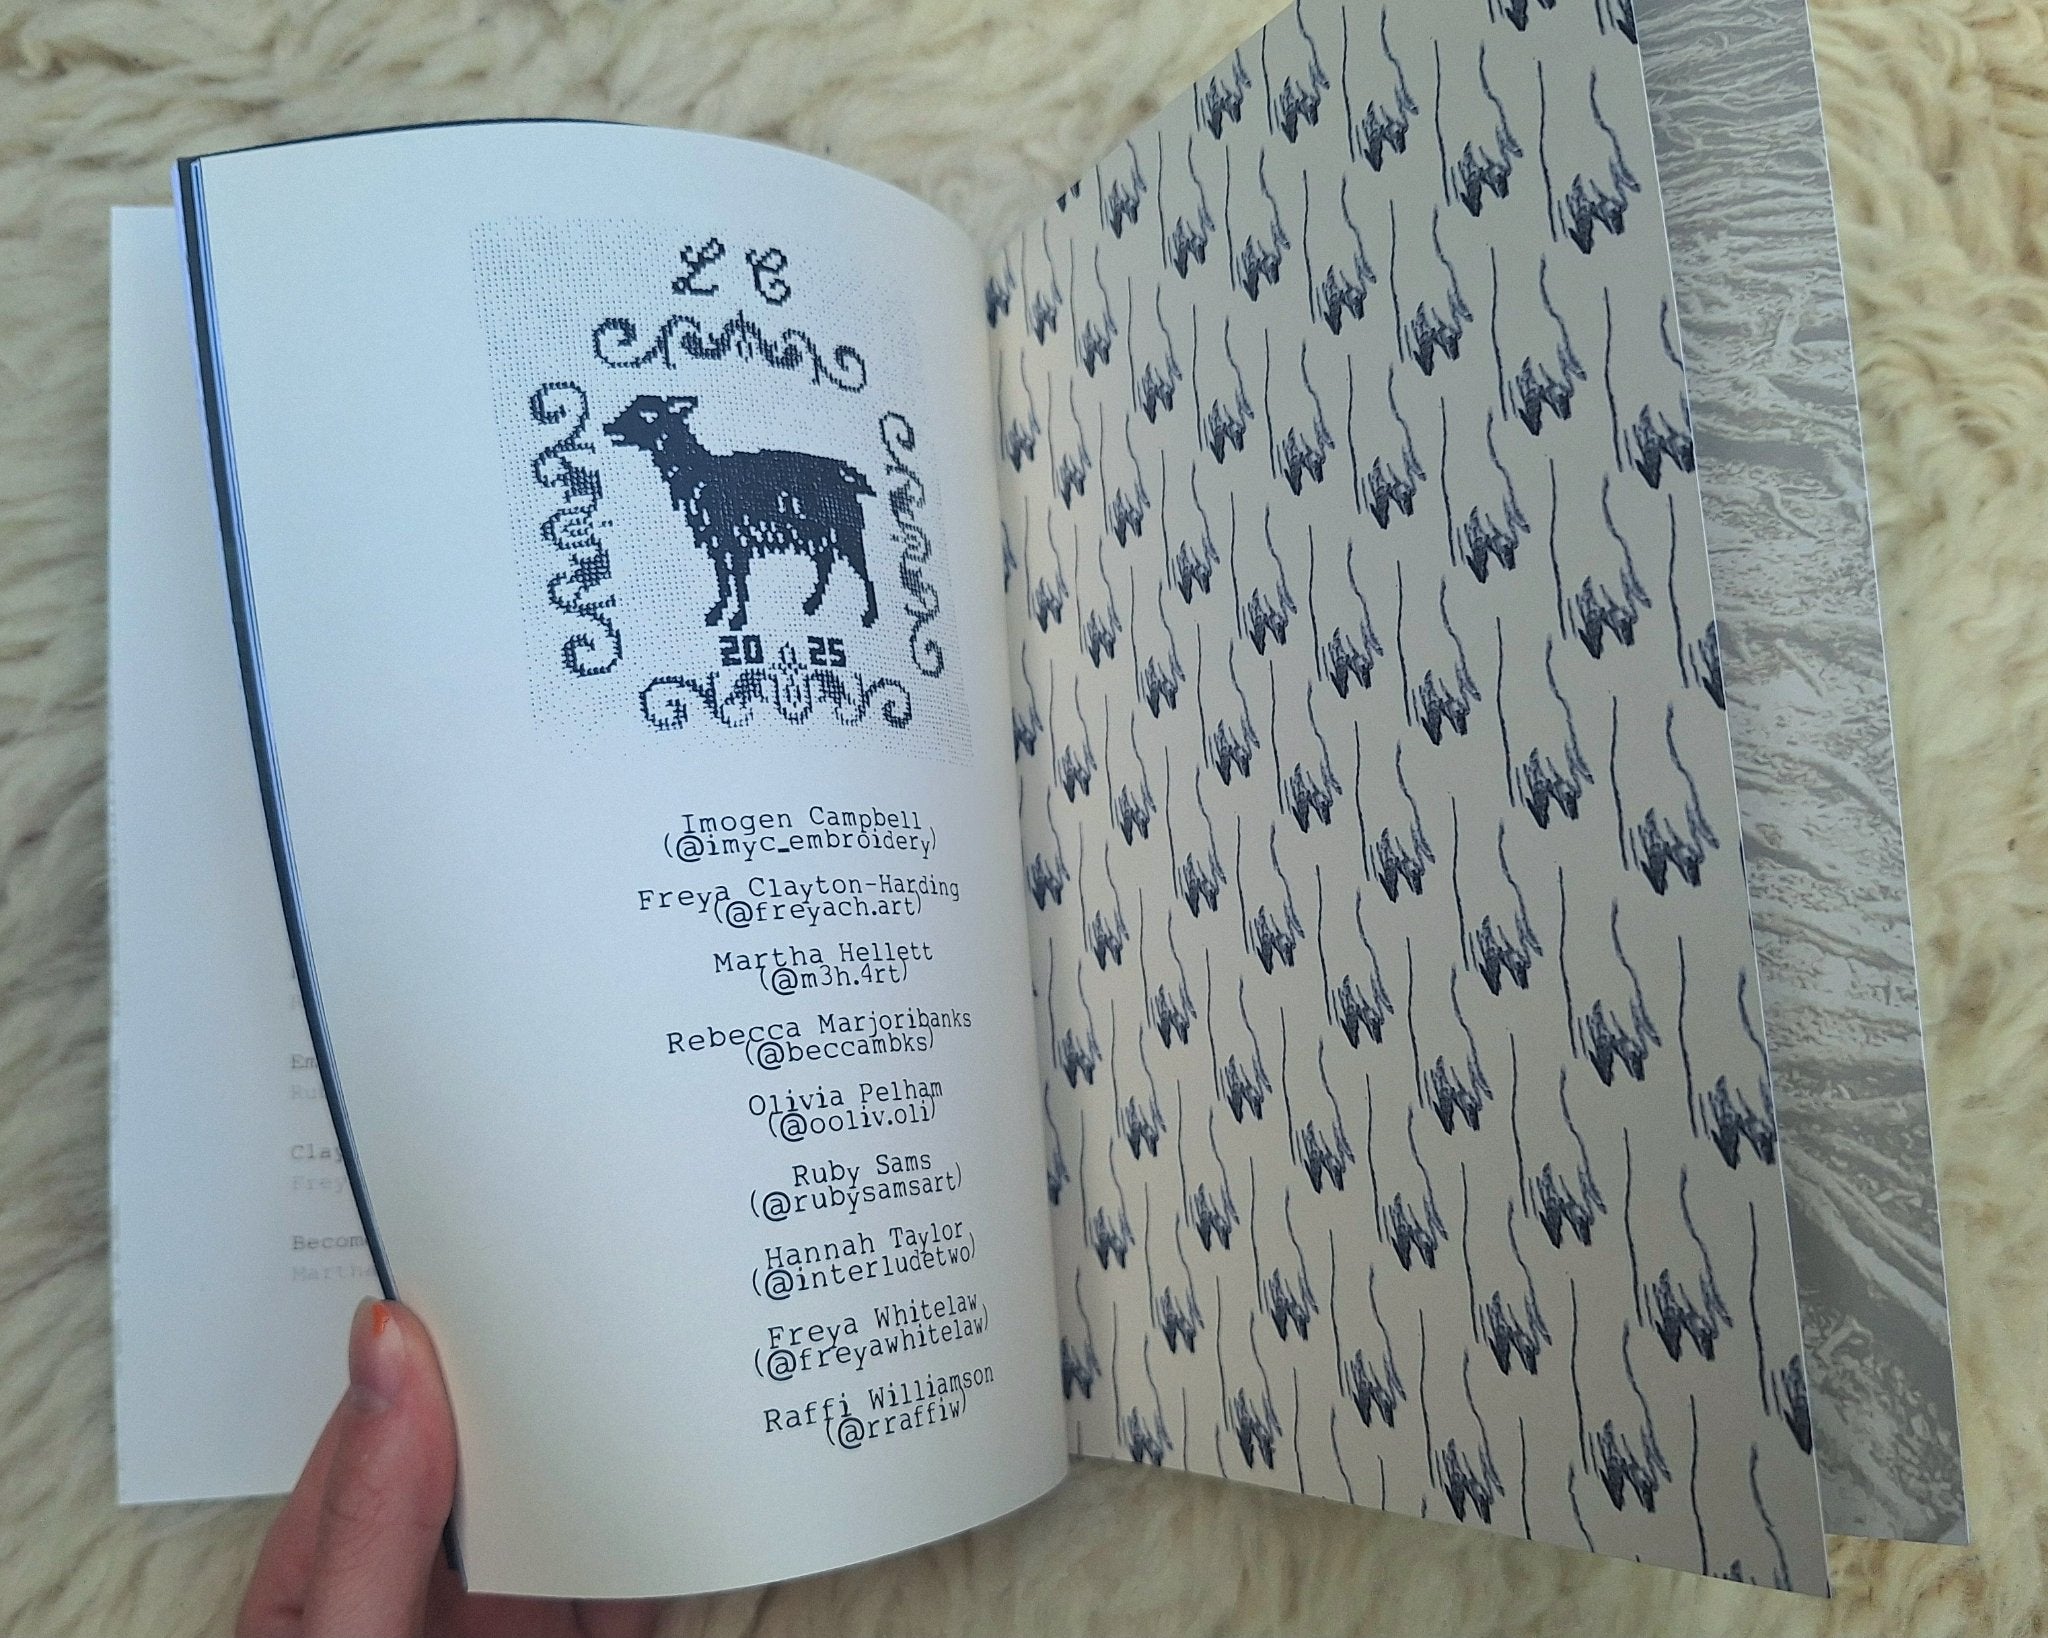 L C
20 25
Imogen Campbell
(@imyc_embroidery)
Freya Clayton-Harding
(@freyach.art)
Martha Hellett
(@m3h.4rt)
Rebecca Marjoribanks
(@beccambks)
Olivia Pelham
(@ooliv.oli)
Ruby Sams
(@rubysamsart)
Hannah Taylor
(@interludetwo)
Freya Whitelaw
(@freyawhitelaw)
Raffi Williamson
(@rraffiw)